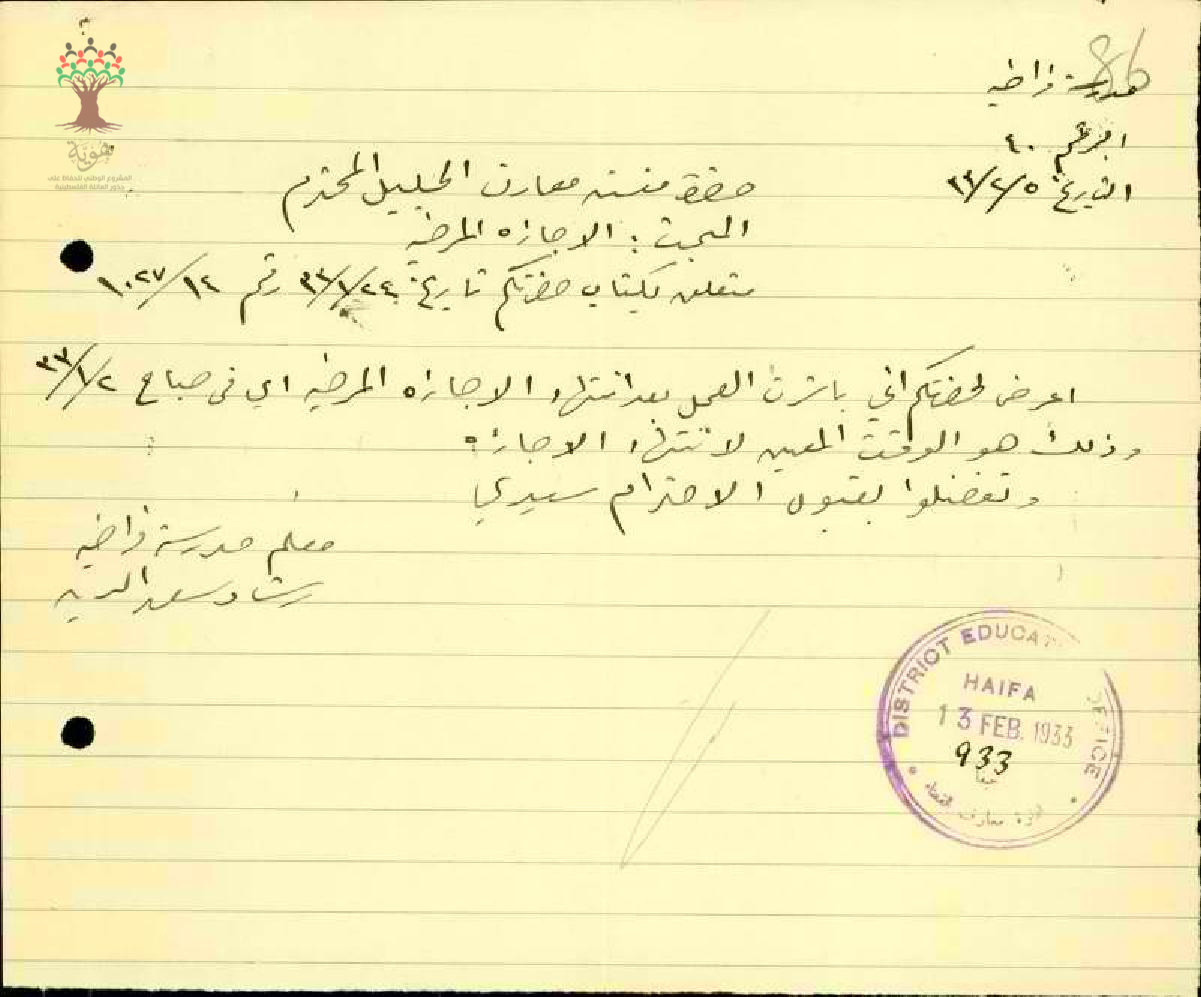 86
مدرسة فراضيه
الرقم ٤٠
التاريخ ٣٣/٢/٥
هوية
المشروع الوطني للحفاظ على
جذور العائلة الفلسطينية
حضرة مفتش معارف الجليل المحترم
البحث: الاجازه المرضيه
متعلق بكتاب حضرتكم تاريخ ٣٣/١/٢٤ رقم ١٠٢٧/١٤
اعرض لحضرتكم اني باشرت العمل بعد انتهاء الاجازه المرضيه اي في صباح ٣٣/١/٢
وذلك هو الوقت المعين لانتهاء الاجازه
وتفضلوا بقبول الاحترام سيدي
معلم مدرسة فراضيه
رشاد سعد الدين
DISTRICT EDUCAT OFFICE
HAIFA
13 FEB. 1933
933
حيفا
معارف القضاء